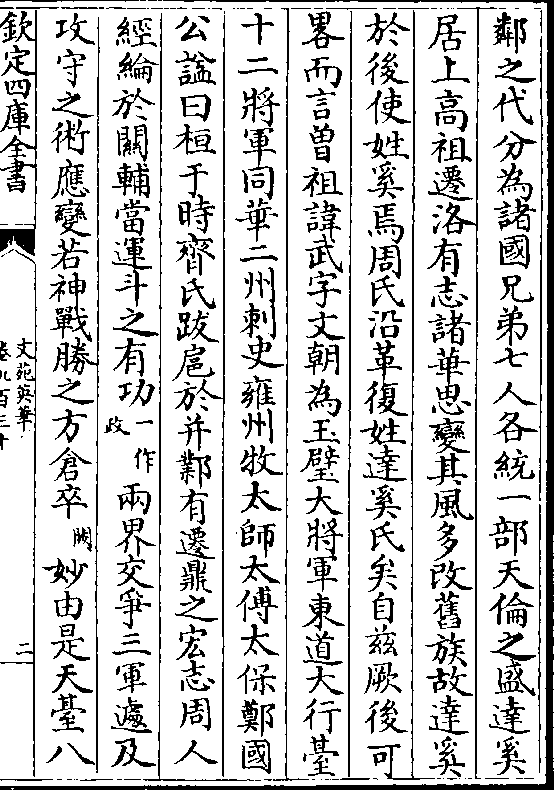 鄰之代分為諸國兄弟七人各統一部天倫之盛達奚
居上高祖遷洛有志諸華思變其風多改舊族故達奚
於後使姓奚焉周氏沿革復姓達奚氏矣自兹厥後可
畧而言曽祖諱武字文朝為玉壁大將軍東道大行臺
十二將軍同華二州刺史雍州牧太師太傅太保鄭國
公謚曰桓于時齊氏跋扈於并鄴有遷鼎之宏志周人
經綸於關輔當運斗之有功一作政兩界交爭三軍遽及
攻守之術應變若神戰勝之方倉卒闕妙由是天臺八
欽定四庫全書
文苑英華
卷九百三十
二